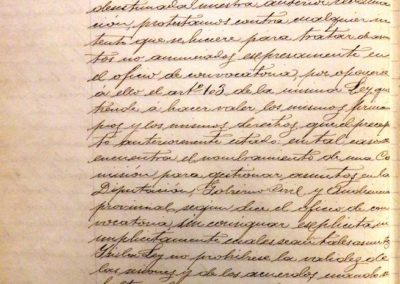 desestimada nuestra anterior
ción, protestamos contra cualquier in
tento que se hiciere para tratar de asun
tos no anunciados expresamente en
el oficio de convocatoria, por oponerse
á ello el artº 103 de la misma Ley, que
tiende á hacer valer los mismos princi
pios y los mismos derechos que el precep
to anteriormente citado, en tal caso se
encuentra el nombramiento de una Co
misión para gestionar asuntos en la
Diputación, Gobierno Civil y Audiencia
provincial, según dice el oficio de con
vocatoria, sin consignar explícita, ni
implícitamente cuales sean tales asuntos
Si la Ley no prohibiese la validez de
las sesiones y de los acuerdos cuando